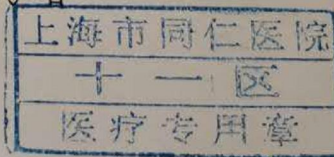 上海市同仁医院
十一区
医疗专用章